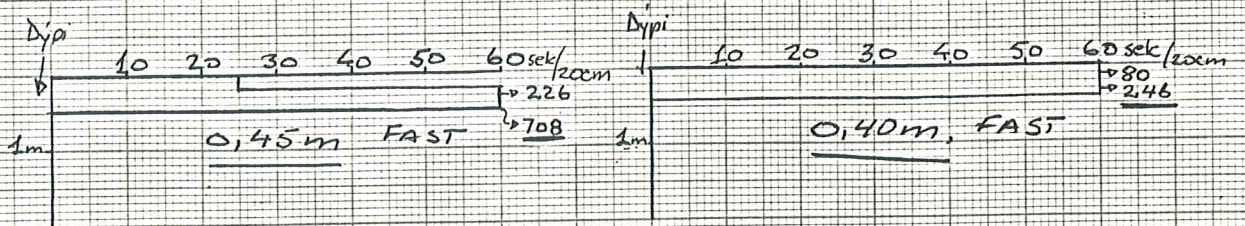 Dýpi
10 20 30 40 50 60 sek/20cm
226
708
0,45m FAST
1m
Dýpi
10 20 30 40 50 60 sek/20cm
80
246
0,40m, FAST
1m